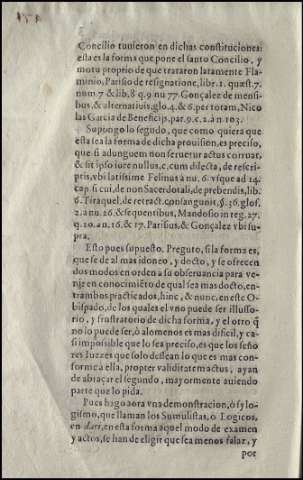 Concilio tuuieron en dichas constituciones:
esta es la forma que pone el santo Concilio, y
motu proprio de que trataron latamente Fla-
minio, Parisio de resignatione, libr. 1. quæst. 7.
num. 7 & lib. 8 q. 9 nu 77. Gonçalez de mensi-
bus, & alternatiuis, glo. 4. & 6. per totam, Nico
las Garcia de Beneficijs. par. 9. c. 2. à n. 103.
Supongo lo segũdo, que como quiera que
esta sea la forma de dicha prouision, es preciso,
que si adunguem non seruetur actus corruat,
& sit ipso iure nullus, c. cum dilecta, de rescri-
ptis, vbi latissime Felinus à nu. 6. vsque ad 14.
cap. si cui, de non Sacerdotali, de prebendis, lib.
6. Tiraquel. de retract. consanguinit. §. 36. glos.
2. à nu. 26. & sequentibus, Mandosio in reg. 27.
q. 20. à n. 16. & 17. Parisius, & Gonçalez vbi su-
pra.
Esto pues supuesto. Pregũto, si la forma es,
que se de al mas idoneo, y docto, y se ofrecen
dos modos en orden a su obseruancia para ve-
nir en conocimiẽto de qual sea mas docto, en-
trambos practicados, hinc, & nunc, en este O-
bispado, de los quales el vno puede ser illusso-
rio, y frustratorio de dicha forma, y el otro q̃
no lo puede ser, ò alomenos es mas dificil, y ca-
si imposible que lo sea preciso, es que los seño
res Iuezes que solo dessean lo que es mas con-
forme à ella, propter validitatem actus, ayan
de abraçar el segundo, mayormente auiendo
parte que lo pida.
Pues hago aora vna demonstracion, ò sylo-
gismo, que llaman los Sumulistas, ò Logicos,
en dari, en esta forma aquel modo de examen
y actos, se han de eligir que sea menos falaz, y
por